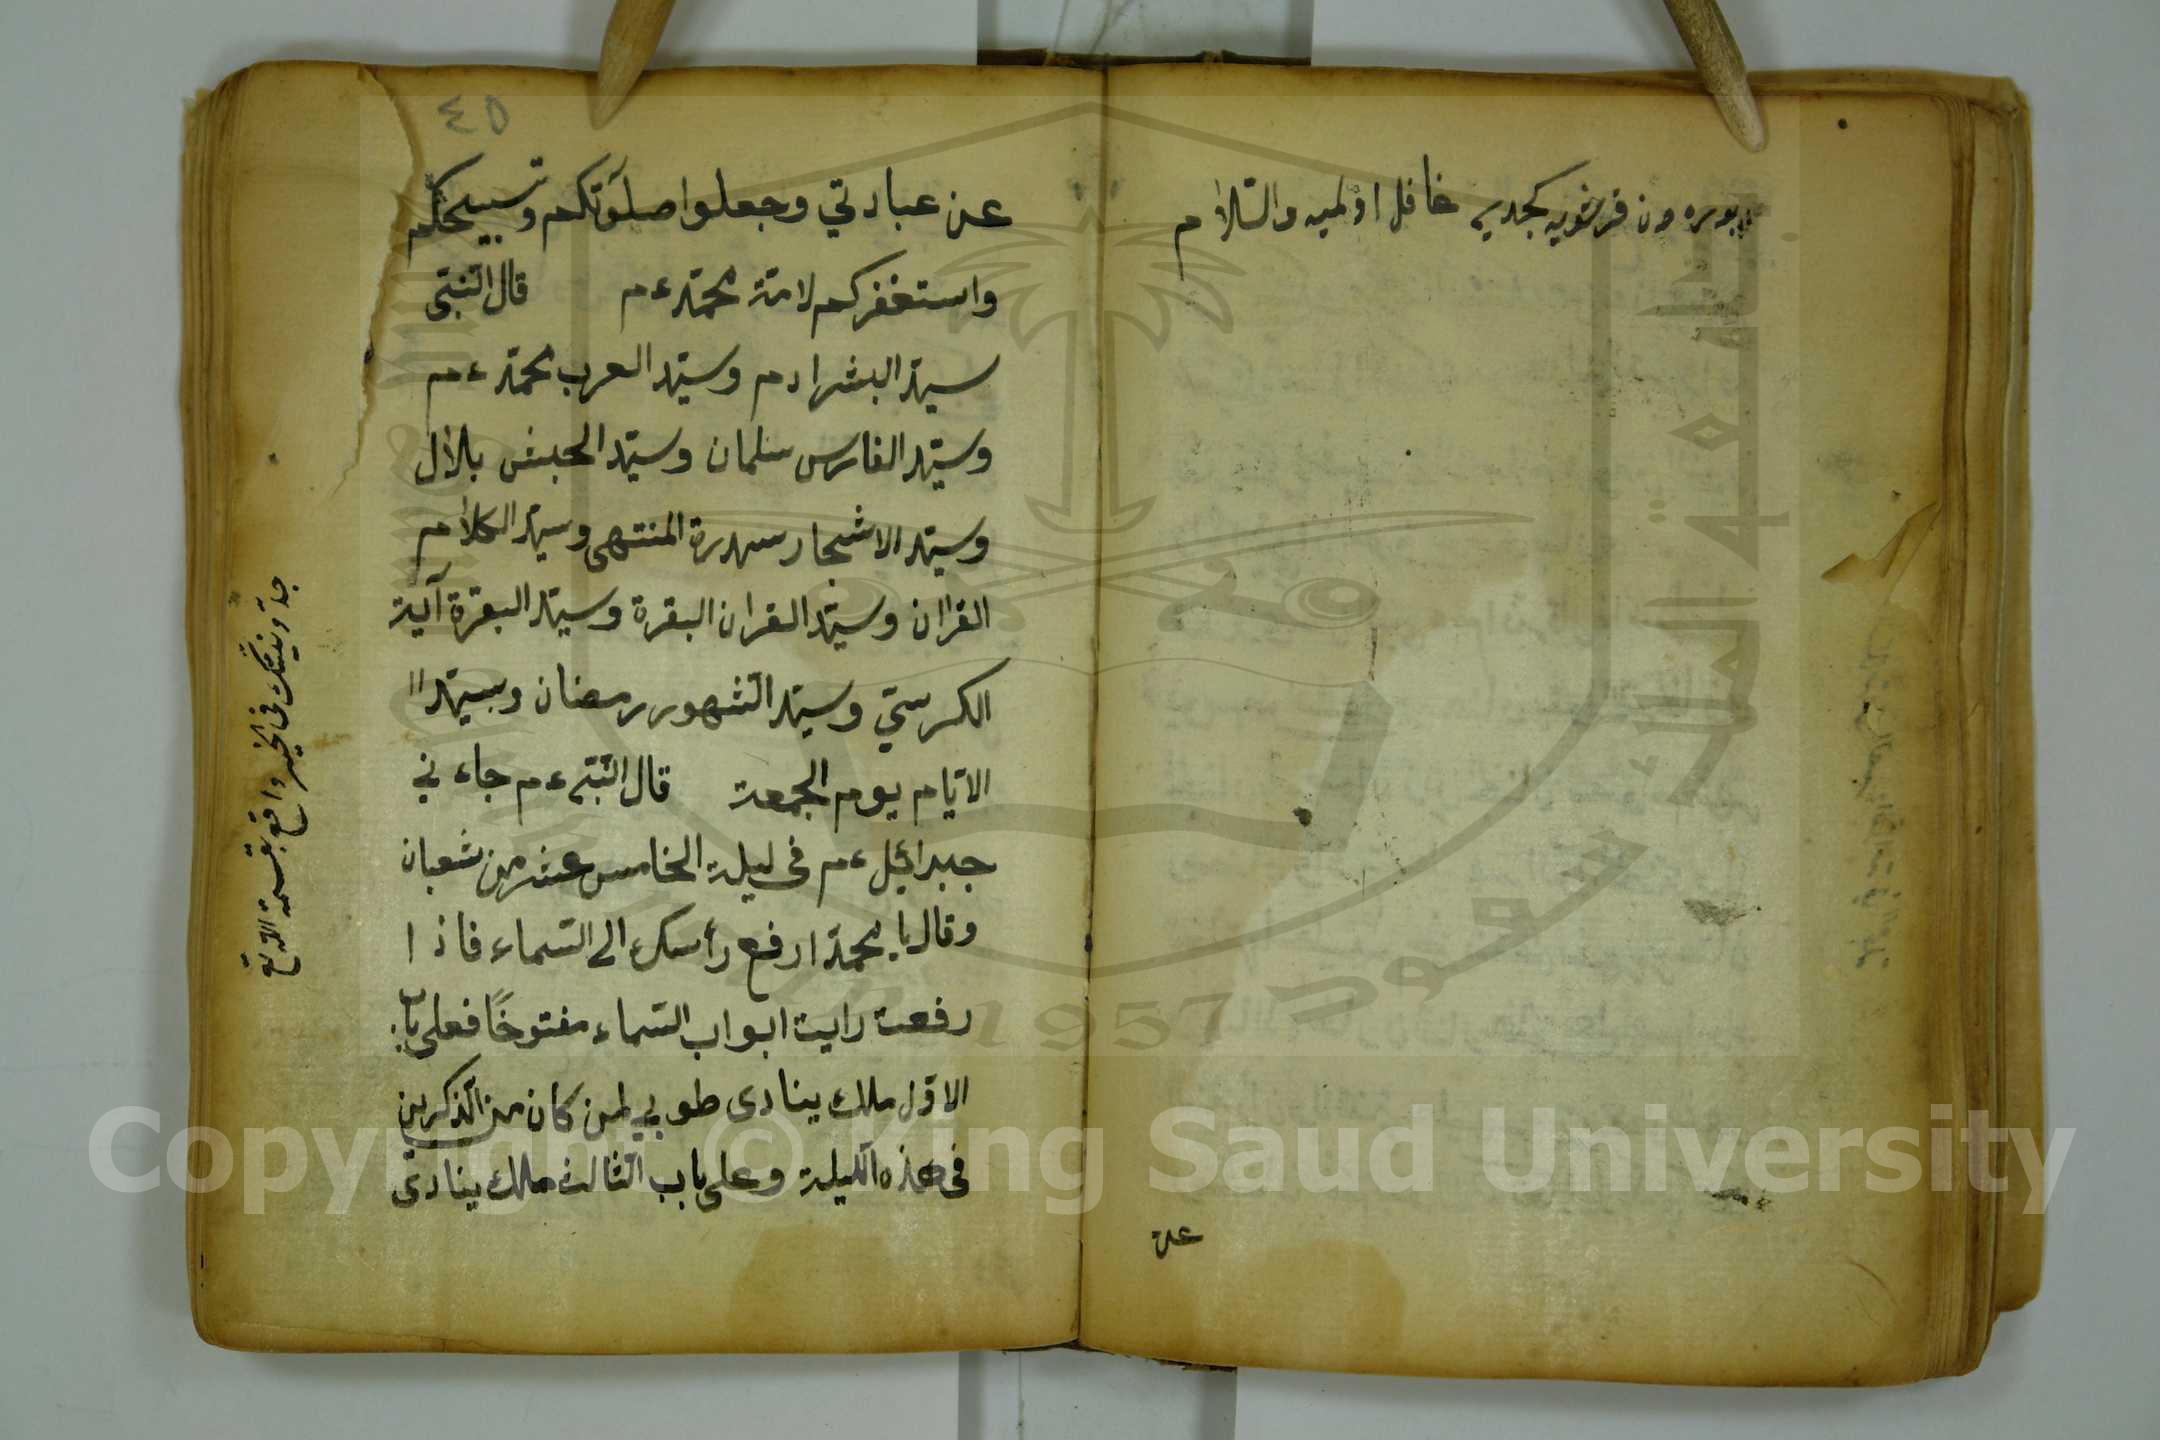 غافل اولميه والسلام
عن
٤٥
عن عبادتي وجعلوا صلوتكم وتسبيحكم
واستغفركم لامة محمد ءم قال النبى
سيد البشر ادم وسيد العرب محمد ءم
وسيد الفارس سلمان وسيد الحبش بلال
وسيد الاشجار سدرة المنتهى وسيد الكلام
القران وسيد القران البقرة وسيد البقرة آية
الكرسي وسيد الشهور رمضان وسيد ال
الايام يوم الجمعة قال النبى ءم جاءني
جبرائيل ءم فى ليلة الخامس عشر من شعبان
وقال يا محمد ارفع رأسك الى السماء فاذا
رفعت رايت ابواب السماء مفتوحًا فعلى باب
الاول ملك ينادى طوبي لمن كان من الذكرين
فى هذه الليلة وعلى باب الثالث ملك ينادى
فى الخير واقع بقسمة الله تع
Copyright © King Saud University
1957